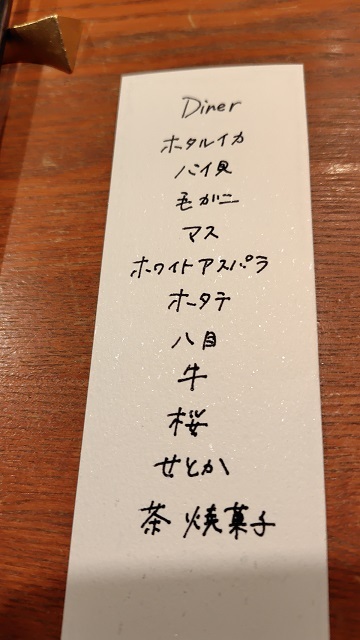 Diner
ホタルイカ
バイ貝
毛がニ
マス
ホワイトアスパラ
ホタテ
八目
牛
桜
せとか
茶 焼菓子